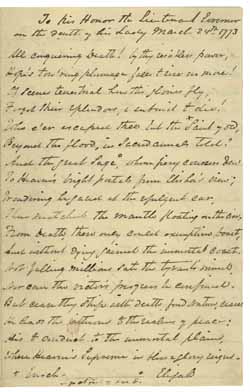 To his Honor the Lieutenant Governor
on the death of his Lady March 24th. 1773
All conquering Death! by thy resistless power,
Hope's tow'ring plumage falls to rise no more!
Of scenes terrestrial how the glories fly,
Forget their splendors, & submit to die!
Who e'er escaped thee but the * Saint of old
Beyond the flood, in Sacred annals told?
And the great Sage° whom fiery coursers drew
To Heaven's bright portals from Elisha's view;
Wondering he gazed at the refulgent car,
Then snatch'd the mantle floating on the air.
From Death these only could exemption boast,
And without dying gained the immortal coast
Not falling millions sate the tyrant's mind,
Nor can the victor's progress be confined.
But cease thy strife with death, fond Nature, cease
He leads the virtuous to the realms of peace;
His to conduct to the immortal plains,
Where Heaven's Supreme in bliss & glory reigns.
* Enoch ° Elijah